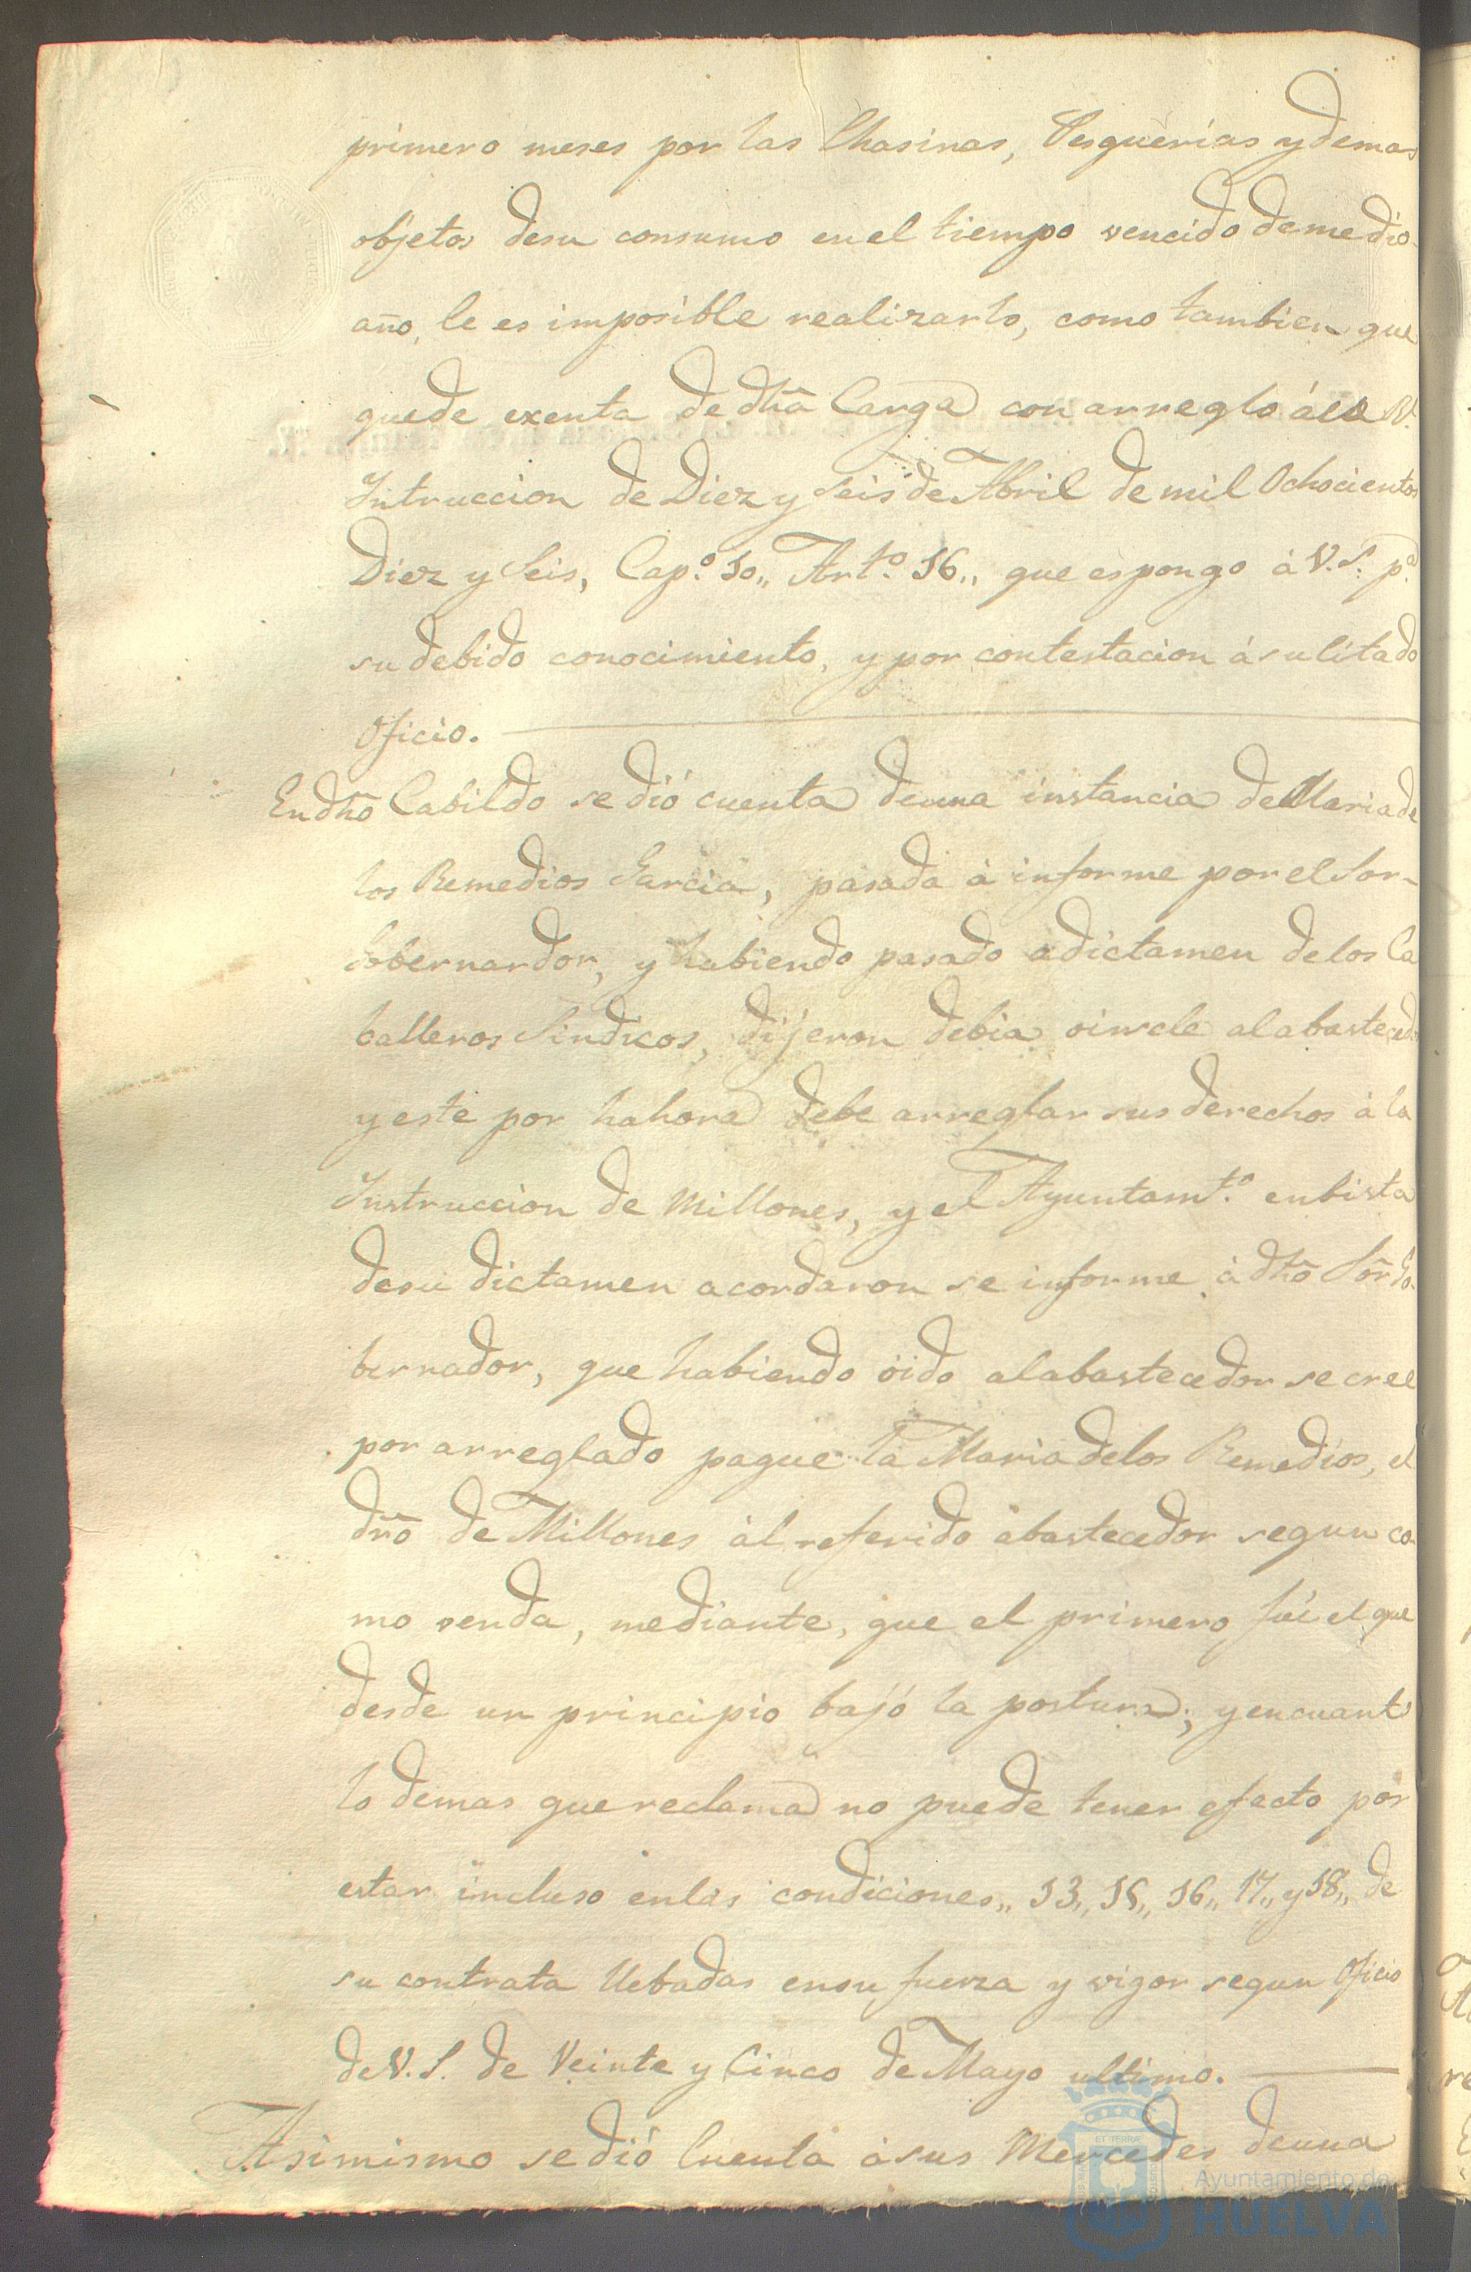 primero meses por las Chasinas, Pesquerias y demas
objetos desu consumo en el tiempo vencido de medio
año, le es imposible realizarlo, como tambien que
quede exenta de dha Carga con arreglo á la Rl.
Intruccion de Diez y Seis de Abril de mil Ochocientos
Diez y Seis, Cap.º 10,, Art.º 16,, que espongo á V.S. p.ª
su debido conocimiento, y por contestacion á su Citado
Oficio.
En dho Cabildo se dió cuenta deuna instancia de Maria de
los Remedios Garcia, pasada á informe por el Sor
Gobernardor, y habiendo pasado a dictamen delos Ca
balleros Sindicos, dijeron debia oirsele al abastecedor
y este por hahora debe arreglar sus derechos á la
Instruccion de Millones, y el Ayuntamt.º enbista
desu dictamen acordaron se informe á dho Sor Go
bernador, que habiendo óido al abastecedor se cree
por arreglado pague la Maria delos Remedios, el
dro de Millones ál referido abastecedor segun co
mo venda, mediante, que el primero fué el que
desde un principio bajó la postura; y encuanto
lo demas que reclama no puede tener efecto por
estar incluso enlas condiciones,, 13,, 15,, 16,, 17,, y 18,, de
su contrata llebadas ensu fuerza y vigor segun Oficio
de V.S. de Veinte y Cinco de Mayo ultimo.
Asimismo se dió Cuenta ásus Mercedes deuna
ET TERRÆ
Ayuntamiento de
HUELVA